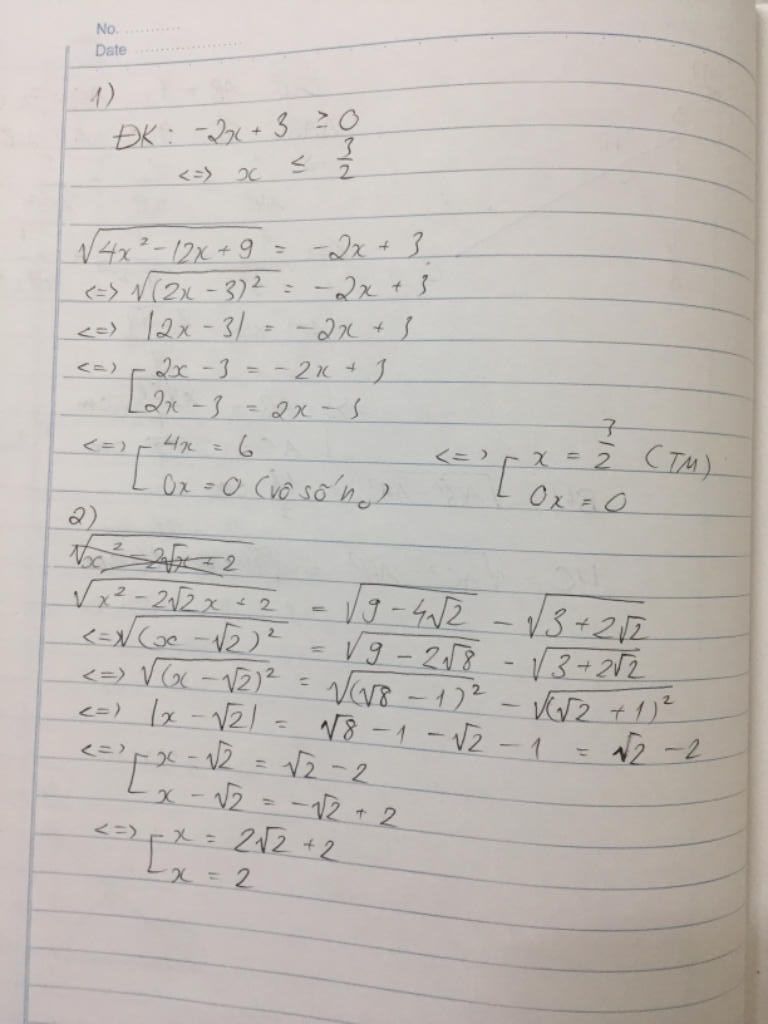 No. ............
Date ........................
1)
ĐK: -2x + 3 ≥ 0
<=> x ≤ 3/2
√(4x² - 12x + 9) = -2x + 3
<=> √((2x - 3)²) = -2x + 3
<=> |2x - 3| = -2x + 3
<=> [ 2x - 3 = -2x + 3
2x - 3 = 2x - 3
<=> [ 4x = 6 <=> [ x = 3/2 (TM)
0x = 0 (vô số n₀) 0x = 0
2)
√(x² - 2√x + 2)
√(x² - 2√2x + 2) = √(9 - 4√2) - √(3 + 2√2)
<=> √((x - √2)²) = √(9 - 2√8) - √(3 + 2√2)
<=> √((x - √2)²) = √((√8 - 1)²) - √((√2 + 1)²)
<=> |x - √2| = √8 - 1 - √2 - 1 = √2 - 2
<=> [ x - √2 = √2 - 2
x - √2 = -√2 + 2
<=> [ x = 2√2 + 2
x = 2